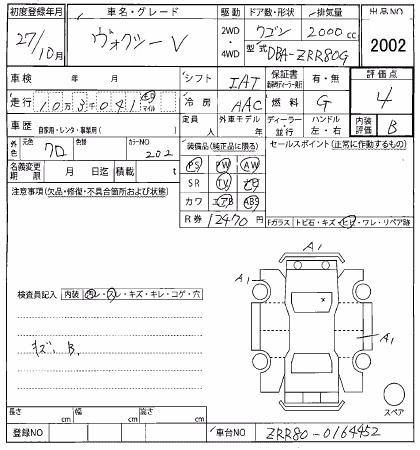 初度登録年月 車名・グレード 駆動 ドア数・形状 排気量 出品NO
27/10月 ヴォクシー V 2WD ・ 4WD ワゴン 2000cc 2002
型式 DBA-ZRR80G
車検 年 月 シフト IAT 保証書 有・無 評価点
走行 10万3千041 キロ マイル 冷房 AAC 燃料 G 4
車歴 自家用・レンタ・事業用( ) 定員 人 外車モデル 年 ディーラー 並行 ハンドル 左・右 内装評価 B
外色 元色 クロ 色替 カラーNO 202 装備品(純正品に限る) セールスポイント(正常に作動するもの)
名義変更期限 月 日迄 積載 t PS PW AW
注意事項(欠品・修復・不具合箇所および状態) SR TV ナビ
カワ エアB ABS
R券 12470円 Fガラス トビ石・キズ・ヒビ・ワレ・リペア跡
A1
A1
検査員記入 内装 汚レ・スレ・キズ・キレ・コゲ・穴
×
キズ、B、
A1
スペア
長さ cm 幅 cm 高さ cm
登録NO 車台NO ZRR80-0164452